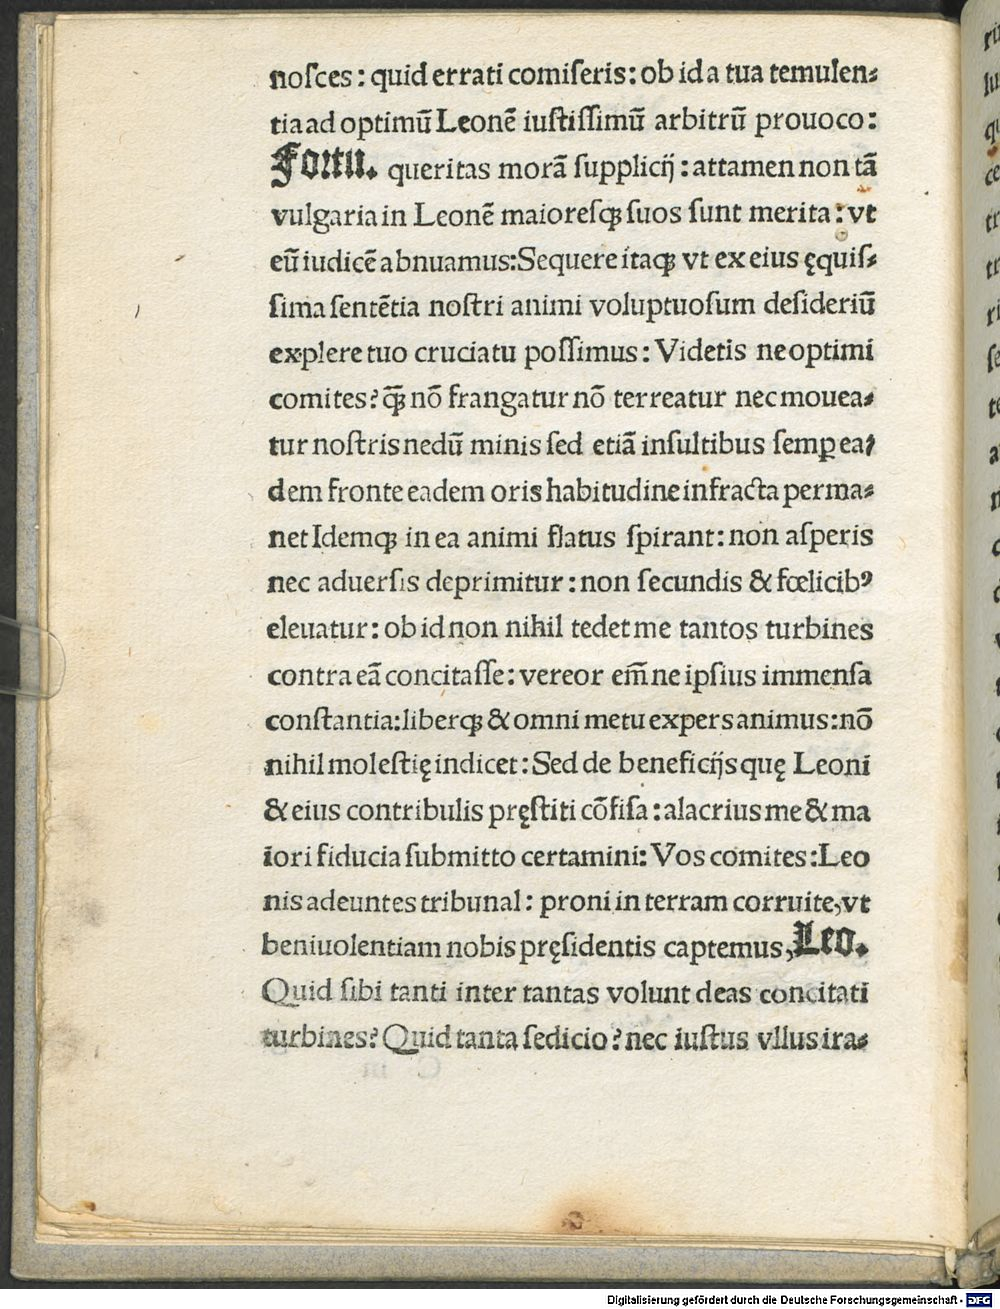 noſces : quid errati comiſeris : ob id a tua temulen⸗
tia ad optimū Leonē iuſtiſſimū arbitrū prouoco :
Fortu. queritas morā ſupplicij : attamen non tā
vulgaria in Leonē maioresqꝫ ſuos ſunt merita : vt
eū iudicē abnuamus: Sequere itaqꝫ vt ex eius ęquiſ⸗
ſima ſentētia noſtri animi voluptuoſum deſideriū
explere tuo cruciatu poſſimus : Videtis ne optimi
comites? qꝫ̄ nō frangatur nō terreatur nec mouea⸗
tur noſtris nedū minis ſed etiā inſultibus ſemꝑ ea⸗
dem fronte eadem oris habitudine infracta perma⸗
net Idemqꝫ in ea animi flatus ſpirant : non aſperis
nec aduerſis deprimitur : non ſecundis & fœlicibꝰ
eleuatur : ob id non nihil tedet me tantos turbines
contra eā concitaſſe : vereor em̄ ne ipſius immenſa
conſtantia: liberqꝫ & omni metu expers animus: nō
nihil moleſtię indicet : Sed de beneficijs quę Leoni
& eius contribulis pręſtiti cōfiſa : alacrius me & ma
iori fiducia ſubmitto certamini: Vos comites: Leo
nis adeuntes tribunal : proni in terram corruite, vt
beniuolentiam nobis pręſidentis captemus, Leo.
Quid ſibi tanti inter tantas volunt deas concitati
turbines? Quid tanta ſedicio? nec iuſtus vllus ira⸗
Digitalisierung gefördert durch die Deutsche Forschungsgemeinschaft - DFG